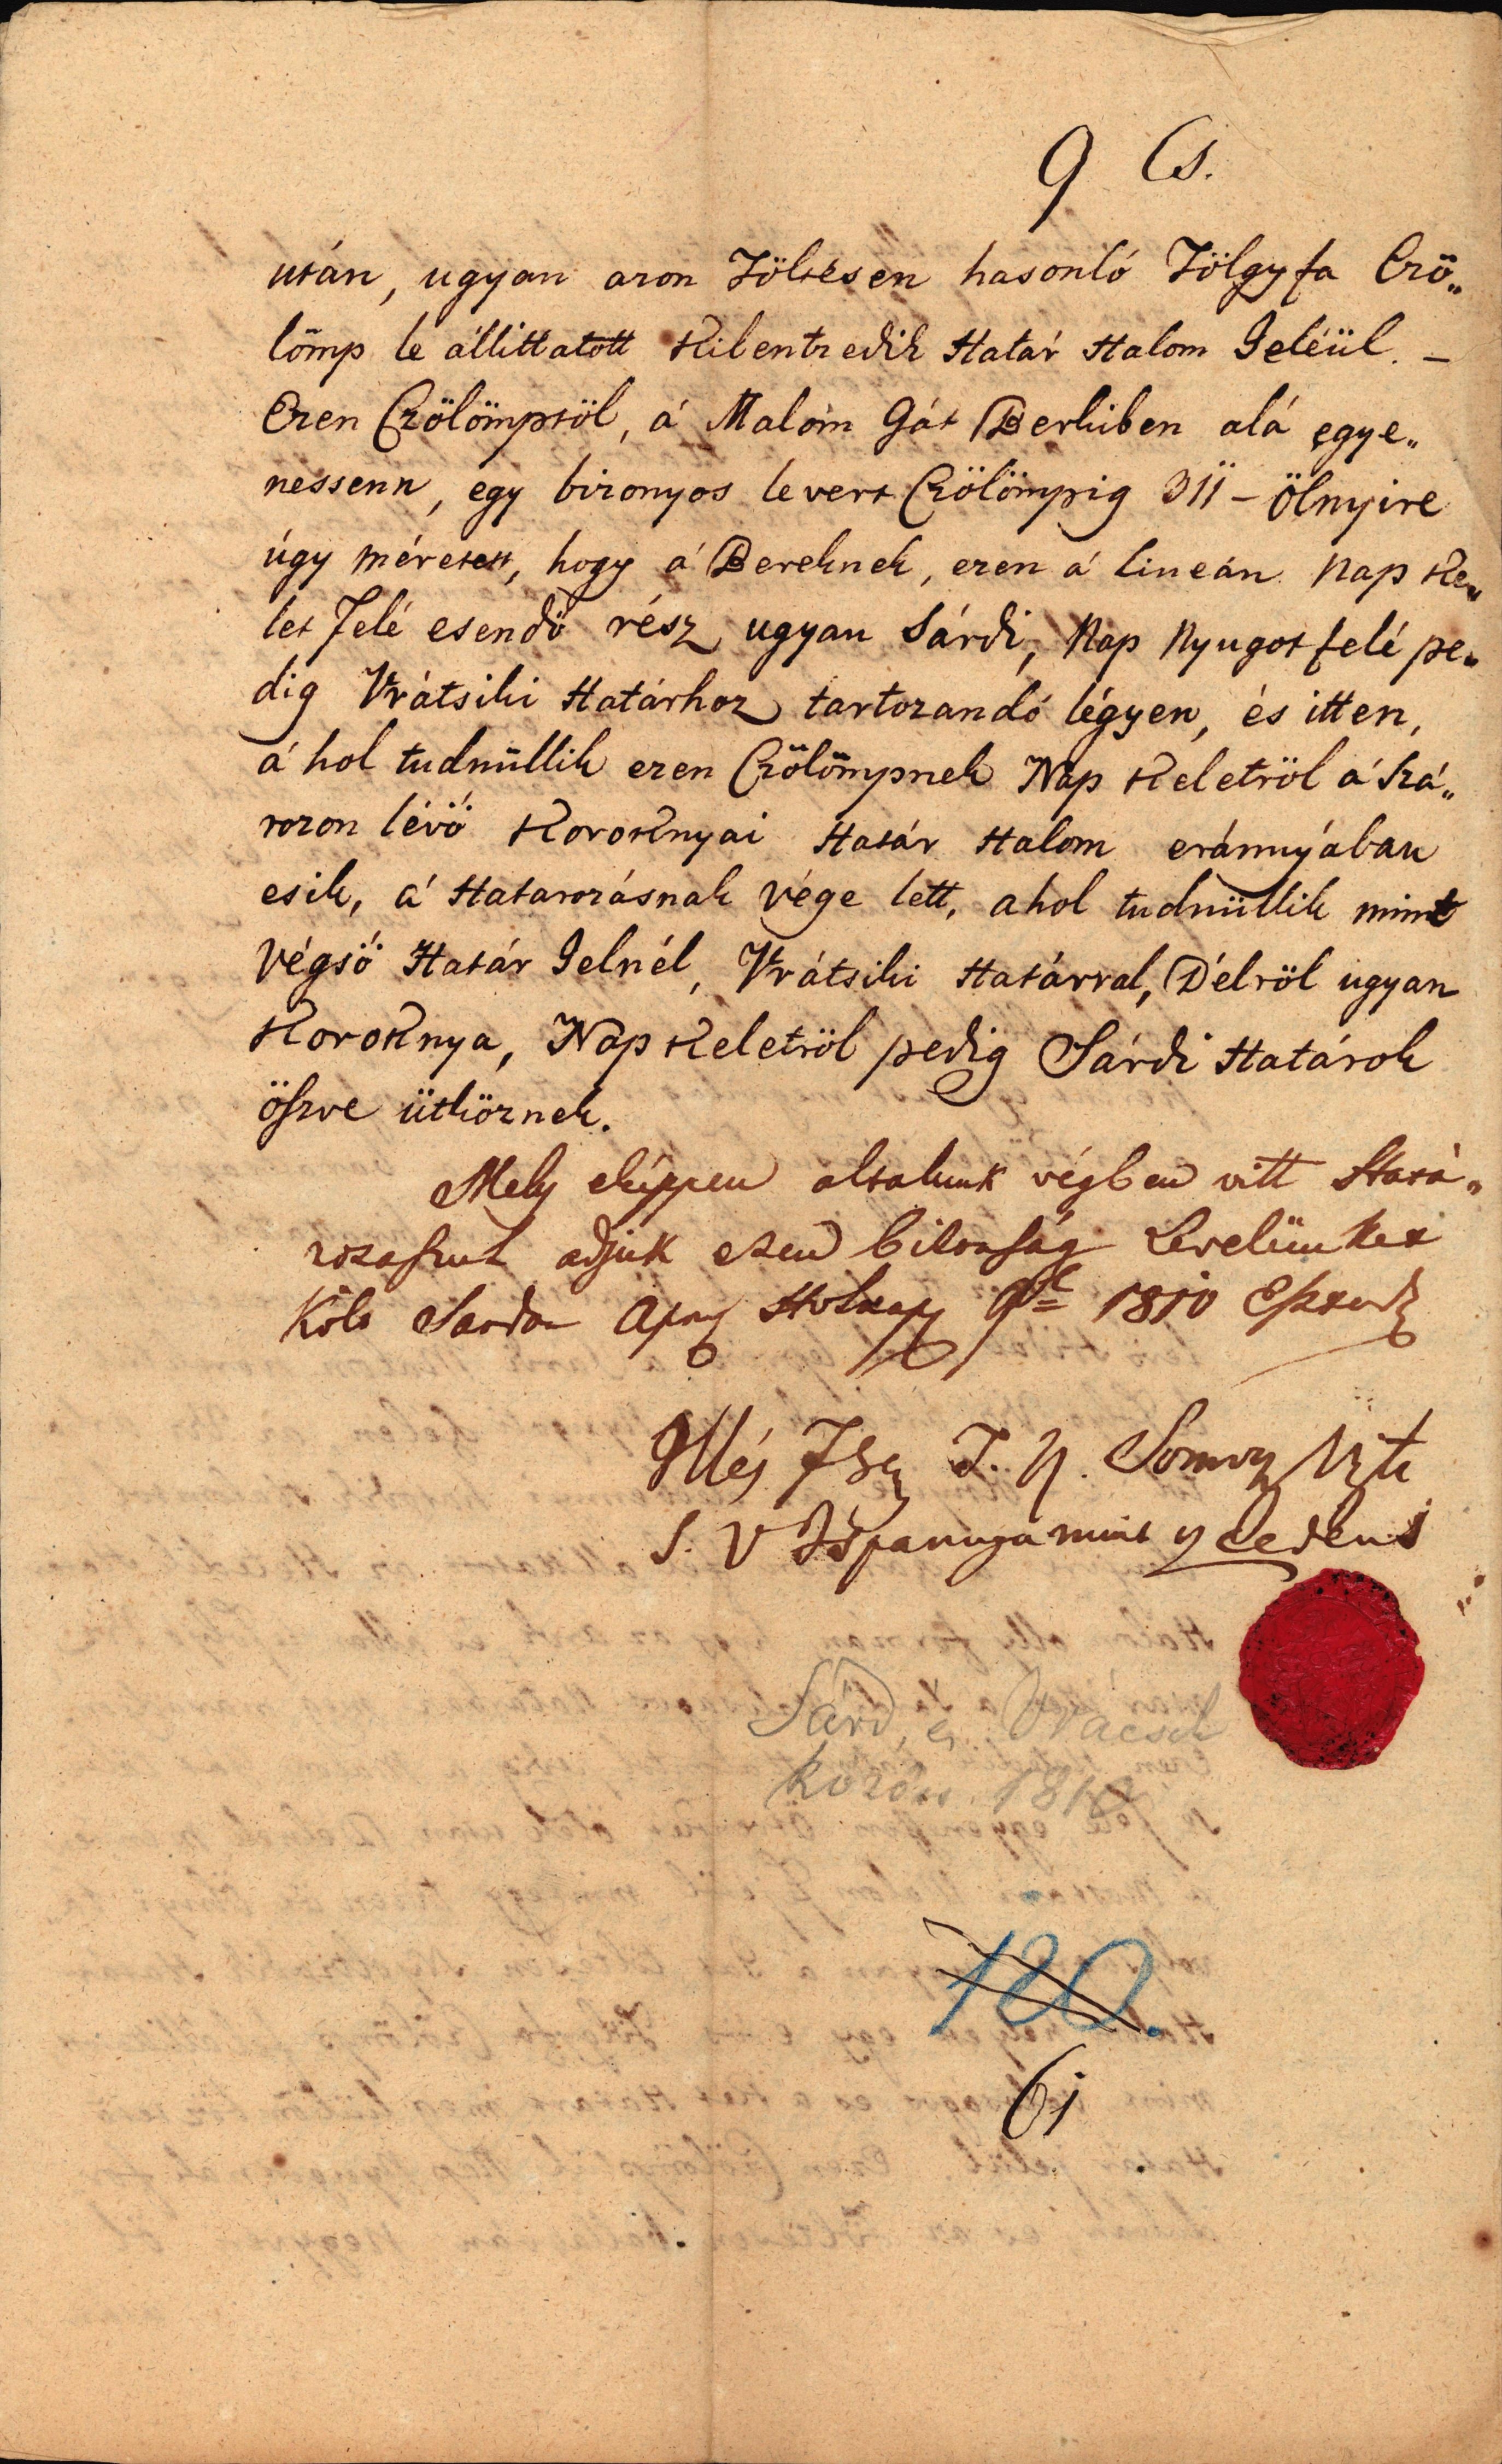 9 Cs.
után, ugyan azon Töltésen hasonló Tölgyfa Czö„
lömp le állittatott Kilentzedik Határ Halom Jeléül. –
Ezen Czölömptöl, á Malom Gát Berkiben alá egye„
nessenn, egy bizonyos levert Czölömpig 311 – Ölnyire
úgy méretett, hogy á Bereknek, ezen á lineán Nap Ke„
let Felé esendö rész ugyan Sárdi, Nap Nyugot felé pe„
dig Vrátsiki Határhoz tartozandó légyen, és itten,
á hol tudniillik ezen Czölömpnek Nap Keletröl á Szá„
razon lévö Koroknyai Határ Halom eránnyában
esik, á Hatarozásnak Vége lett, ahol tudniillik mint
Végsö Határ Jelnél, Vrátsiki Határral, Délröl ugyan
Koroknya, Nap Keletröl pedig Sárdi Határok
öszve ütköznek.
Mely eképpen altalunk végben vitt Hatá„
rozasrul adjuk ezen bizonság Levelünket
Költ Sardon 9 1810
Illés T. N. Somogy
S. V Ispannya mint
Sárd, és Vrácsik
között 1810
120.
61